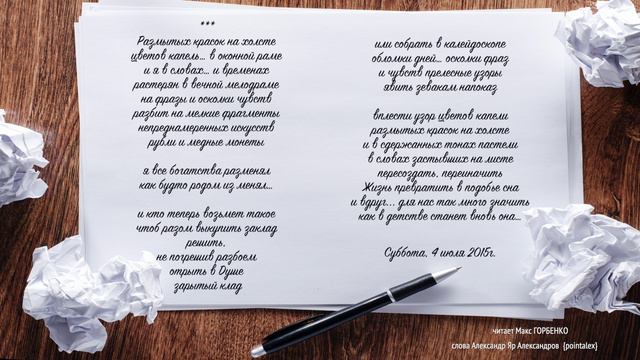 ***
Размытых красок на холсте
цветов капель... в оконной раме
и я в словах... и временах
растерян в вечной мелодраме
на фразы и осколки чувств
разбит на мелкие фрагменты
непреднамеренных искусств
рубли и медные монеты
я все богатства разменял
как будто родом из менял...
и кто теперь возьмет такое
чтоб разом выкупить заклад
решить,
не погрешив разбоем
отрыть в Душе
зарытый клад
или собрать в калейдоскопе
обломки дней... осколки фраз
и чувств прелестные узоры
явить зевакам напоказ
вплести узор цветов капели
размытых красок на холсте
и в сдержанных тонах пастели
в словах застывших на листе
пересоздать, переиначить
Жизнь превратить в подобье сна
и вдруг... для нас так много значить
как в детстве станет вновь она...
Суббота, 4 июля 2015г.
читает Макс ГОРБЕНКО
слова Александр Яр Александров {pointalex}